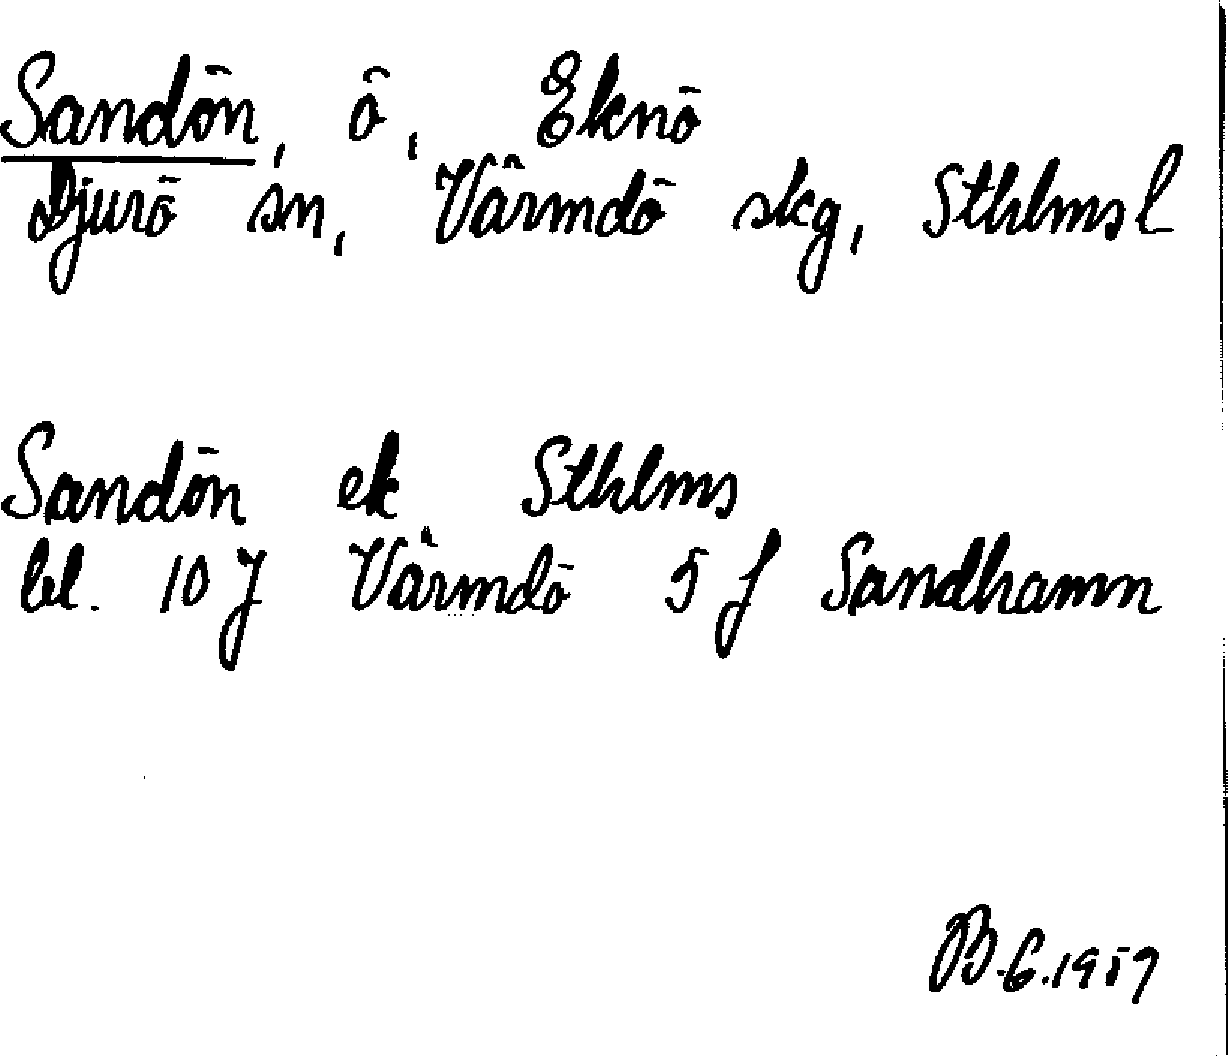 Sandön, ö, Eknö
Djurö sn, Värmdö skg, Sthlms l
Sandön ek Sthlms
bl. 10 J Värmdö 5 f Sandhamn
B.G. 1959